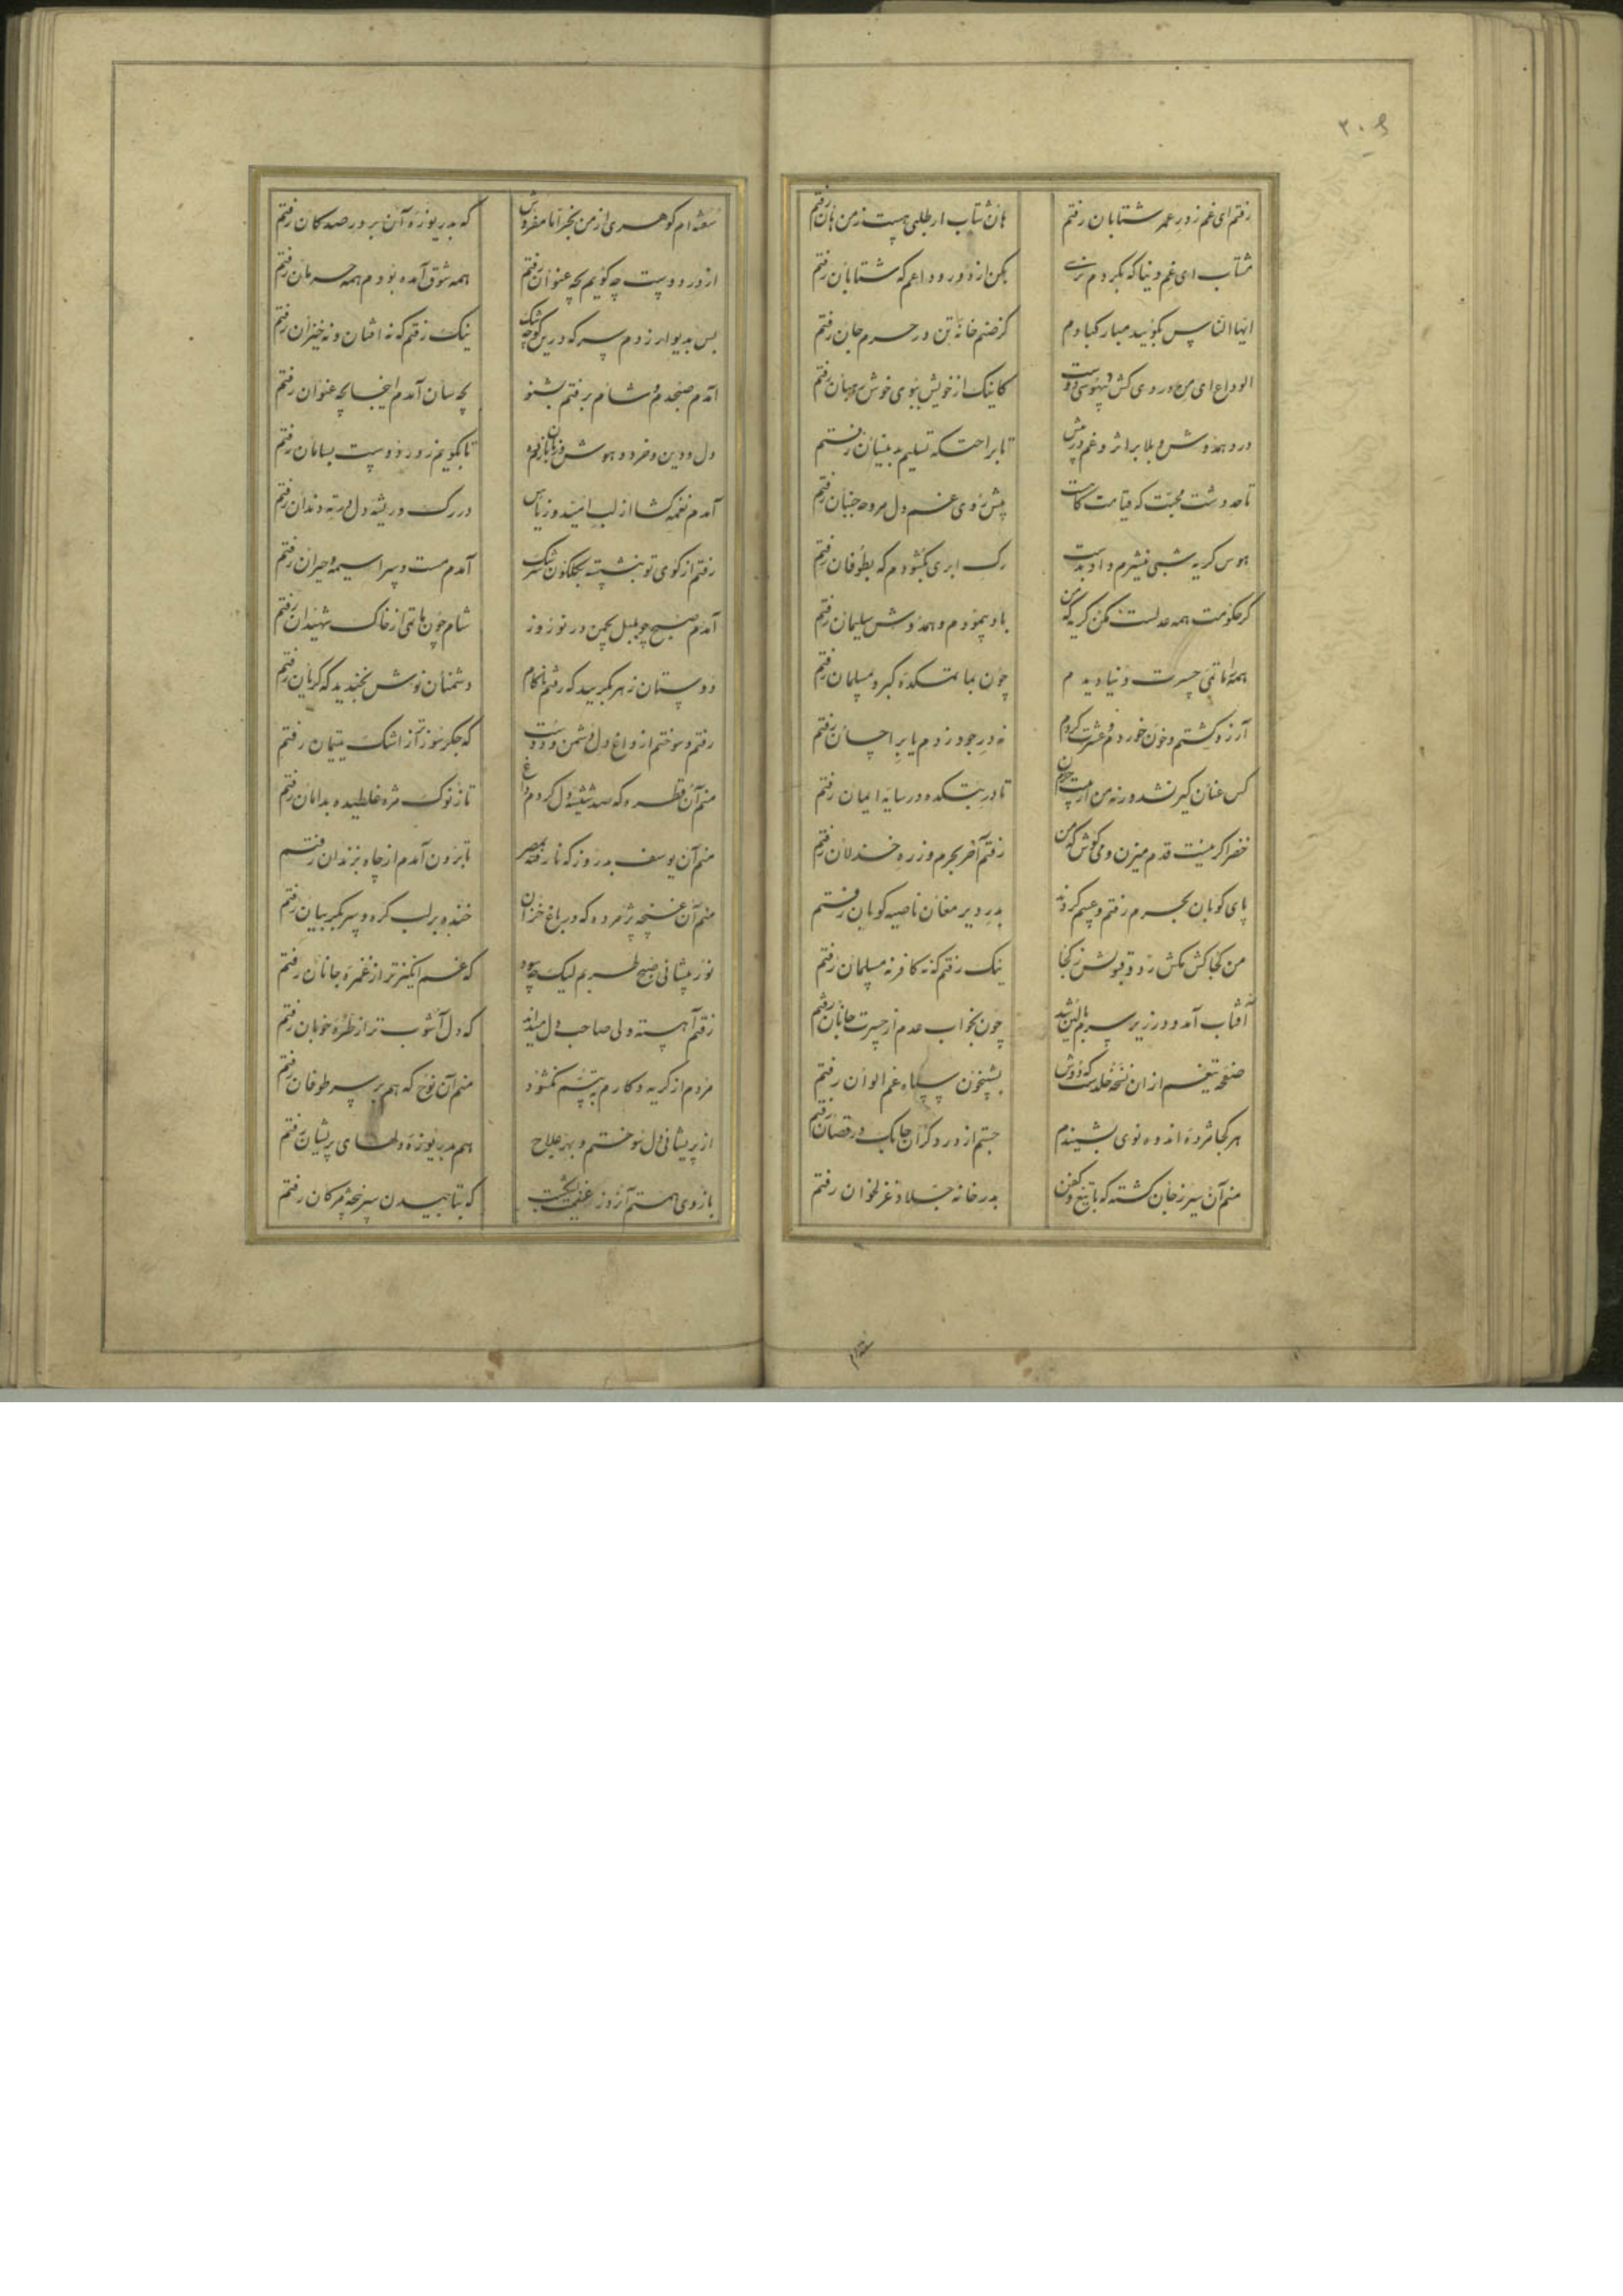 ۳۰۹
رفتم ای غم ز در عمر شتابان رفتم هان شتاب ار طلبی هست ز من هان رفتم
مشتاب ای غم دنیا که بگردم نرسی بکن از دور وداعم که شتابان رفتم
ایها الناس بگویید مبارکبادم کز صنم خانهٔ تن در حرم جان رفتم
الوداع ای من و دردی کش بیهوشی دوست کاینک از خویش ببوی خوش رفتم
درد همدوش و بلا بر اثر و غم در پیش تا براحتکه تسلیم بدینسان رفتم
تا حد دشت محبت که قیامت پیش روی غم دل مروحه جنبان رفتم
هوس گریه شبی میشدم داد بدست رک ابری بکشودم که بطوفان رفتم
گر حکومت همه عدلست مکن گریه که من باد پیمودم و همدوش سلیمان رفتم
همه ماتمی حسرت دنیا دیدم چون بماتمکده گبر و مسلمان رفتم
آرزو کشتم و خون خوردم و عشرت کردم نه در جود زدم یا بر احسان رفتم
کس عنان گیر نشد ورنه من از بیت حرم تا در بتکده در سایه ایمان رفتم
خضر اگر نیست قدم میزن و می کوش که من رفتم آخر بحرم وز ره خذلان رفتم
پای کوبان بحرم رفتم و چیم کردند بدر دیر مغان ناصیه کوبان رفتم
من کجا کش مکش رد و قبولش ز کجا نیک رفتم که نه کافر نه مسلمان رفتم
آفتاب آمد و در زیر سرم بالین شد چون بخواب عدم از حسرت جانان رفتم
صفحه تیغم از ان نسخه خلدست که دوش بشبیخون سپاه غم الوان رفتم
هر کجا مژده اندوه نوی بشنیدم جستم از درد گران جانک و رقصان رفتم
منم آن سیر ز جان گشته که با تیغ و کفن بدر خانه جلاد غزلخوان رفتم
سفته ام گوهری از من بخر اما مفروش که بدریوزه آن بر در صد کان رفتم
از در دوست چه گویم بچه عنوان رفتم همه شوق آمده بودم همه حرمان رفتم
بس بدیوار زدم سر که درین کوچه تنگ نیک رفتم که نه افتان و نه خیزان رفتم
آمدم صبحدم و شام برفتم بشنو بچه سان آمدم اینجا بچه عنوان رفتم
دل و دین و خرد و هوش و زبان بازدهید تا بگویم ز در دوست بسامان رفتم
آمدم نغمه گشا از لب امید و ز یاس در رگ و ریشه دل فرته دندان رفتم
رفتم از کوی تو بنشسته بگلگون سرشک آمدم مست و سراسیمه و حیران رفتم
آمدم صبح چو بلبل بچمن در نوروز شام چون ماتمی از خاک شهیدان رفتم
دوستان زهر بگریید که رفتم ناکام دشمنان نوش بخندید که گریان رفتم
رفتم و سوختم از داغ دل دشمن و دوست که جگر سوزتر از اشک یتیمان رفتم
منم آن قطره که صد شیشهٔ دل کردم داغ تا ز نوک مژه غلطیده بدامان رفتم
منم آن یوسف بد روز که نارفته بمصر تا برون آمدم از چاه بزندان رفتم
منم آن غنچه پژمرده که در باغ خزان خنده بر لب گره و سر بگریبان رفتم
نور پیشانی صبح طربم لیک چه سود که غم انگیزتر از غمزهٔ جانان رفتم
رفتم آهسته ولی صاحب دل میداند که دل آشوب تر از طرهٔ خوبان رفتم
مردم از گریه و کارم به تبسم نکشود منم آن نوح که هم بر سر طوفان رفتم
از پریشانی دل سوختم و بهر علاج هم بدریوزه دلهای پریشان رفتم
بازوی همتم آن روز بشکست که بتابیدن سرپنجهٔ مرگان رفتم